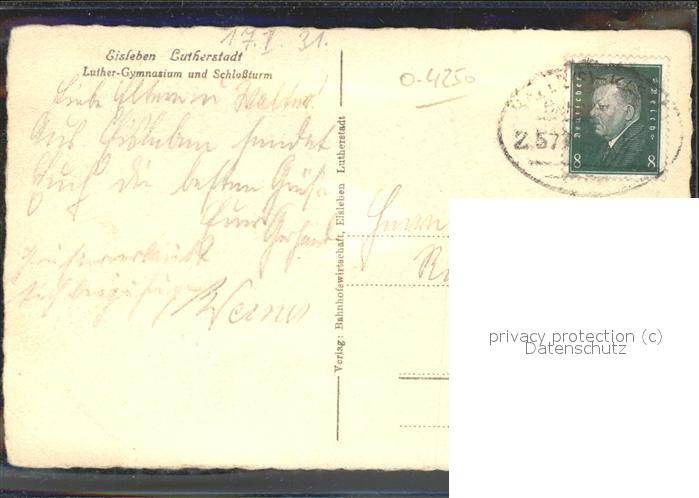 17.I.31.
Eisleben Lutherstadt
Luther-Gymnasium und Schloßturm
O-4250
Liebe Eltern u Walter!
Aus Eisleben sendet
Euch die besten Grüße
Euer Gerhard
Werner
Verlag: Bahnhofswirtschaft, Eisleben Lutherstadt
Herrn
Deutsches Reich
8 8
Z.57
privacy protection (c)
Datenschutz